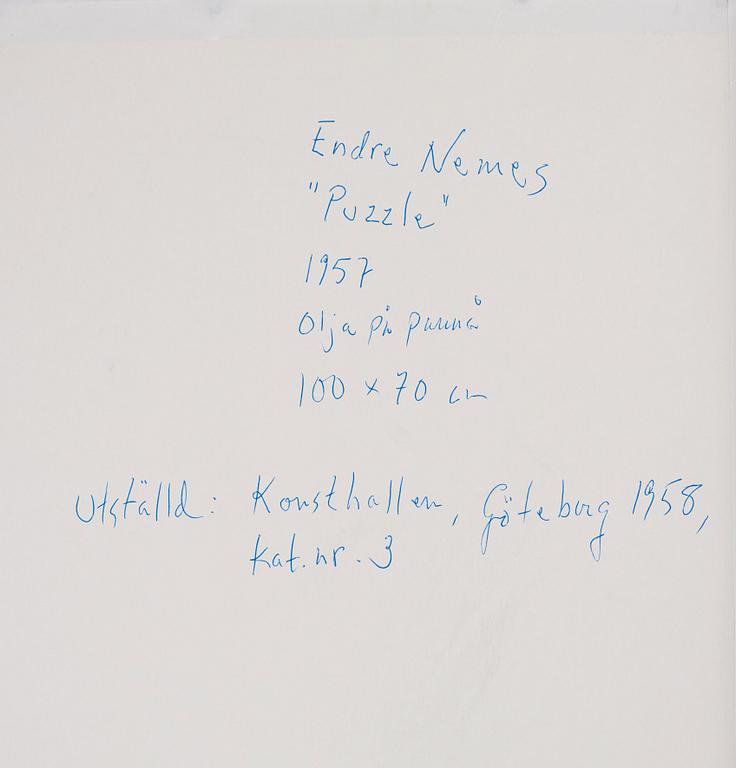 Endre Nemes
"Puzzle"
1957
Olja på pannå
100 x 70 cm
Utställd: Konsthallen, Göteborg 1958,
kat. nr. 3